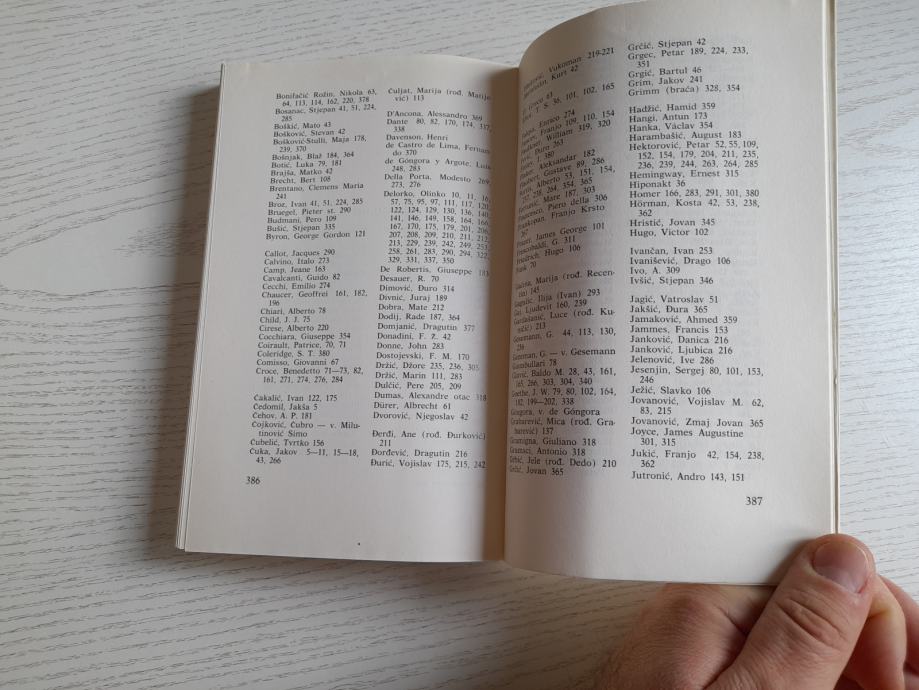 Bonifačić Rožin, Nikola 63,
64, 113, 114, 162, 220, 378
Bosanac, Stjepan 41, 51, 224,
285
Boškić, Mato 43
Bošković, Stevan 42
Bošković-Stulli, Maja 178,
239, 370
Bošnjak, Blaž 184, 364
Botić, Luka 79, 181
Brajša, Matko 42
Brecht, Bert 108
Brentano, Clemens Maria
241
Broz, Ivan 41, 51, 224, 285
Bruegel, Pieter st. 290
Budmani, Pero 109
Bušić, Stjepan 335
Byron, George Gordon 121
Callot, Jacques 290
Calvino, Italo 273
Camp, Jeane 163
Cavalcanti, Guido 82
Cecchi, Emilio 274
Chaucer, Geoffrei 161, 182,
196
Chiari, Alberto 78
Child, J. J. 75
Cirese, Alberto 220
Cocchiara, Giuseppe 354
Coirault, Patrice, 70, 71
Coleridge, S. T. 380
Comisso, Giovanni 67
Croce, Benedetto 71—73, 82,
161, 271, 274, 276, 284
Čakalić, Ivan 122, 175
Čedomil, Jakša 5
Čehov, A. P. 181
Čojković, Čubro — v. Milu-
tinović Simo
Čubelić, Tvrtko 156
Čuka, Jakov 5—11, 15—18,
43, 266
386
Čuljat, Marija (rođ. Marije-
vić) 113
D'Ancona, Alessandro 369
Dante 80, 82, 170, 174, 337,
338
Davenson, Henri
de Castro de Lima, Fernan-
do 370
de Góngora y Argote, Luis
248, 283
Della Porta, Modesto 269,
273, 276
Delorko, Olinko 10, 11, 16,
57, 75, 95, 97, 111, 117, 120,
122, 124, 129, 130, 136, 140,
141, 146, 149, 158, 164, 166,
167, 170, 175, 179, 201, 206,
207, 208, 209, 210, 211, 212,
213, 229, 239, 242, 249, 253,
258, 261, 283, 290, 294, 322,
329, 331, 337, 350
De Robertis, Giuseppe 183
Desauer, R. 70
Dimović, Đuro 314
Divnić, Juraj 189
Dobra, Mate 212
Dodij, Rade 187, 364
Domjanić, Dragutin 377
Donadini, F. Z. 42
Donne, John 283
Dostojevski, F. M. 170
Držić, Džore 235, 236, 305
Držić, Marin 111, 283
Dulčić, Pere 205, 209
Dumas, Alexandre otac 318
Dürer, Albrecht 61
Dvorović, Njegoslav 42
Đerđi, Ane (rođ. Đurković)
211
Đorđević, Dragutin 216
Đurić, Vojislav 175, 215, 242
Vukoman 219-221
Kurt 42
Greco 63
T. S. 36, 101, 102, 165
Enrico 274
Franjo 109, 110, 154
William 319, 320
Đuro 263
I. 380
Aleksandar 182
Gustave 89, 286
Alberto 53, 151, 154,
257, 238, 264, 354, 365
Mare 187, 303
Francesco, Piero della 306
Frankopan, Franjo Krsto
267
Frazer, James George 101
Frescobaldi, G. 311
Friedrich, Hugo 106
Funk 70
Gačina, Marija (rođ. Recen-
tin) 145
Gagulić, Ilija (Ivan) 293
Gaj, Ljudevit 160, 239
Garđašanić, Luce (rođ. Ku-
ničić) 213
Gesemann, G. 44, 113, 130,
236
Gesseman, G. — v. Gesemann
Giambullari 78
Glavić, Baldo M. 28, 43, 161,
165, 266, 303, 304, 340
Goethe, J. W. 79, 80, 102, 164,
182, 199—202, 338
Gòngora, v. de Góngora
Grabarević, Mica (rođ. Gra-
barević) 137
Gramigna, Giuliano 318
Gramsci, Antonio 318
Grbić, Jele (rođ. Dedo) 210
Grčić, Jovan 365
Grčić, Stjepan 42
Grgec, Petar 189, 224, 233,
351
Grgić, Bartul 46
Grim, Jakov 241
Grimm (braća) 328, 354
Hadžić, Hamid 359
Hangi, Antun 173
Hanka, Václav 354
Harambašić, August 183
Hektorović, Petar 52, 55, 109,
152, 154, 179, 204, 211, 235,
236, 239, 244, 263, 264, 285
Hemingway, Ernest 315
Hiponakt 36
Homer 166, 283, 291, 301, 380
Hörman, Kosta 42, 53, 238,
362
Hristić, Jovan 345
Hugo, Victor 102
Ivančan, Ivan 253
Ivanišević, Drago 106
Ivo, A. 309
Ivšić, Stjepan 346
Jagić, Vatroslav 51
Jakšić, Đura 365
Jamaković, Ahmed 359
Jammes, Francis 153
Janković, Danica 216
Janković, Ljubica 216
Jelenović, Ive 286
Jesenjin, Sergej 80, 101, 153,
246
Ježić, Slavko 106
Jovanović, Vojislav M. 62,
83, 215
Jovanović, Zmaj Jovan 365
Joyce, James Augustine
301, 315
Jukić, Franjo 42, 154, 238,
362
Jutronić, Andro 143, 151
387